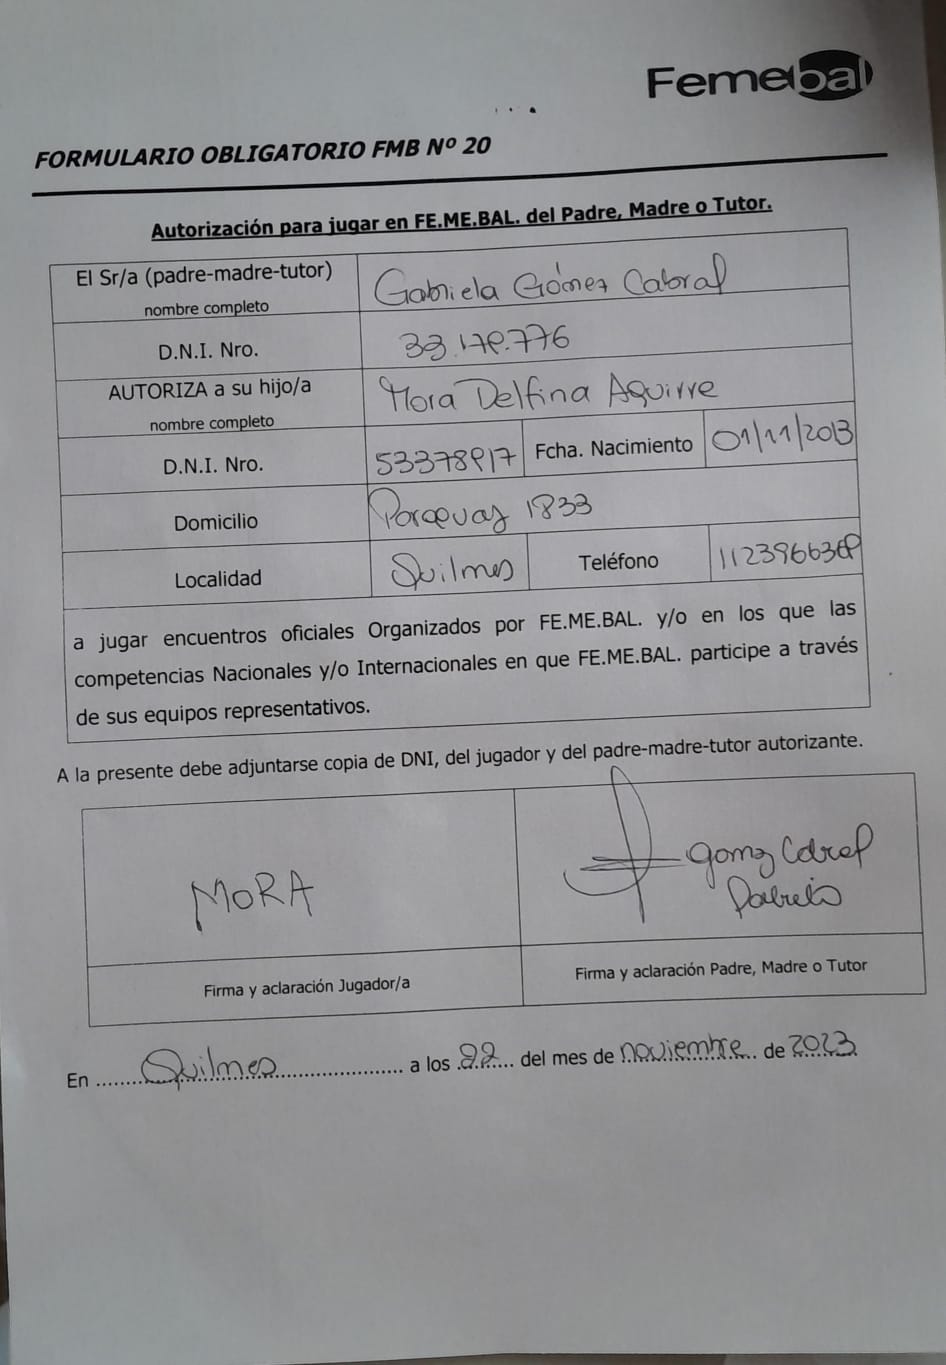 Femebal
FORMULARIO OBLIGATORIO FMB Nº 20
Autorización para jugar en FE.ME.BAL. del Padre, Madre o Tutor.
El Sr/a (padre-madre-tutor) Gabriela Gómez Cabral
nombre completo
D.N.I. Nro.
AUTORIZA a su hijo/a Mora Delfina Aguirre
nombre completo
D.N.I. Nro. 53378917 Fcha. Nacimiento 01/11/2013
Domicilio Paraguay 1833
Localidad Quilmes Teléfono
a jugar encuentros oficiales Organizados por FE.ME.BAL. y/o en los que las
competencias Nacionales y/o Internacionales en que FE.ME.BAL. participe a través
de sus equipos representativos.
A la presente debe adjuntarse copia de DNI, del jugador y del padre-madre-tutor autorizante.
MORA
Gomez Cabral
Firma y aclaración Jugador/a Firma y aclaración Padre, Madre o Tutor
En Quilmes a los 22 del mes de noviembre de 2023